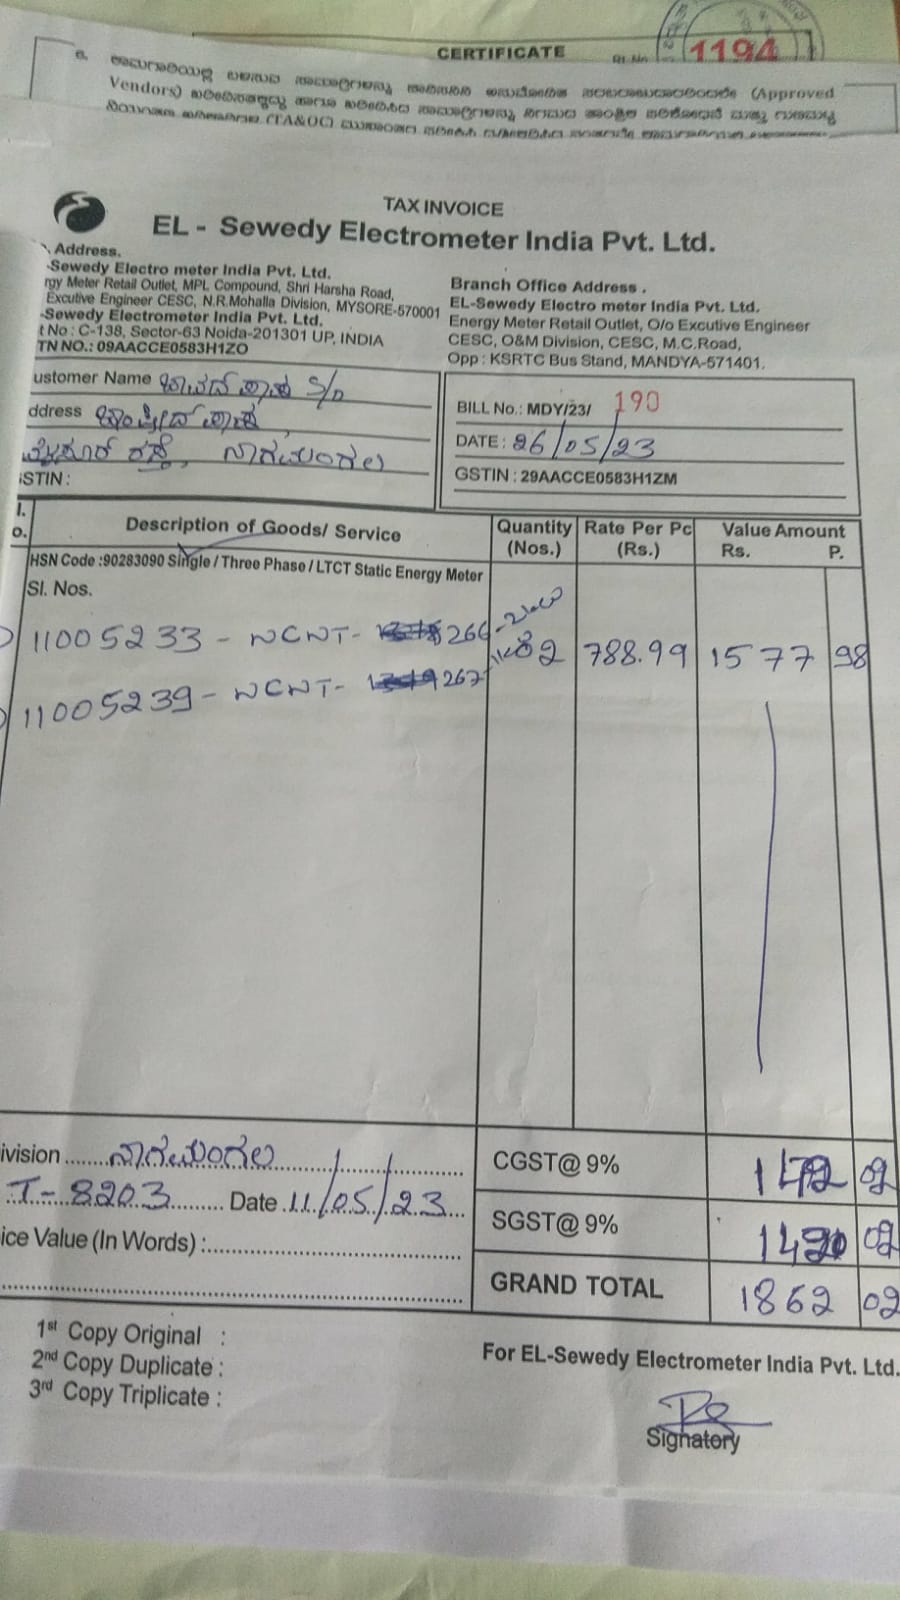 CERTIFICATE
1194
(Approved
Vendors)
(TA&QC)
TAX INVOICE
EL - Sewedy Electrometer India Pvt. Ltd.
Address.
-Sewedy Electro meter India Pvt. Ltd.
rgy Meter Retail Outlet, MPL Compound, Shri Harsha Road,
Excutive Engineer CESC, N.R.Mohalla Division, MYSORE-570001
-Sewedy Electrometer India Pvt. Ltd.
t No : C-138, Sector-63 Noida-201301 UP, INDIA
TN NO.: 09AACCE0583H1ZO
Branch Office Address .
EL-Sewedy Electro meter India Pvt. Ltd.
Energy Meter Retail Outlet, O/o Excutive Engineer
CESC, O&M Division, CESC, M.C.Road,
Opp : KSRTC Bus Stand, MANDYA-571401.
ustomer Name S/o
ddress
ಮೈಸೂರ್ ರಸ್ತೆ, ನಾಗಮಂಗಲ
STIN :
BILL No.: MDY/23/ 190
DATE : 26/05/23
GSTIN : 29AACCE0583H1ZM
l.
o.
Description of Goods/ Service
Quantity (Nos.)
Rate Per Pc (Rs.)
Value Amount
Rs. P.
HSN Code :90283090 Single / Three Phase / LTCT Static Energy Meter
Sl. Nos.
11005233 - NCNT- 266
2 788.99 1577 98
11005239 - NCNT- 267
ivision ........ ನಾಗಮಂಗಲ
T- 8203 Date 11/05/23
ice Value (In Words) :
CGST@ 9% 02
SGST@ 9% 02
GRAND TOTAL 1862 02
1st Copy Original :
2nd Copy Duplicate :
3rd Copy Triplicate :
For EL-Sewedy Electrometer India Pvt. Ltd.
Signatory